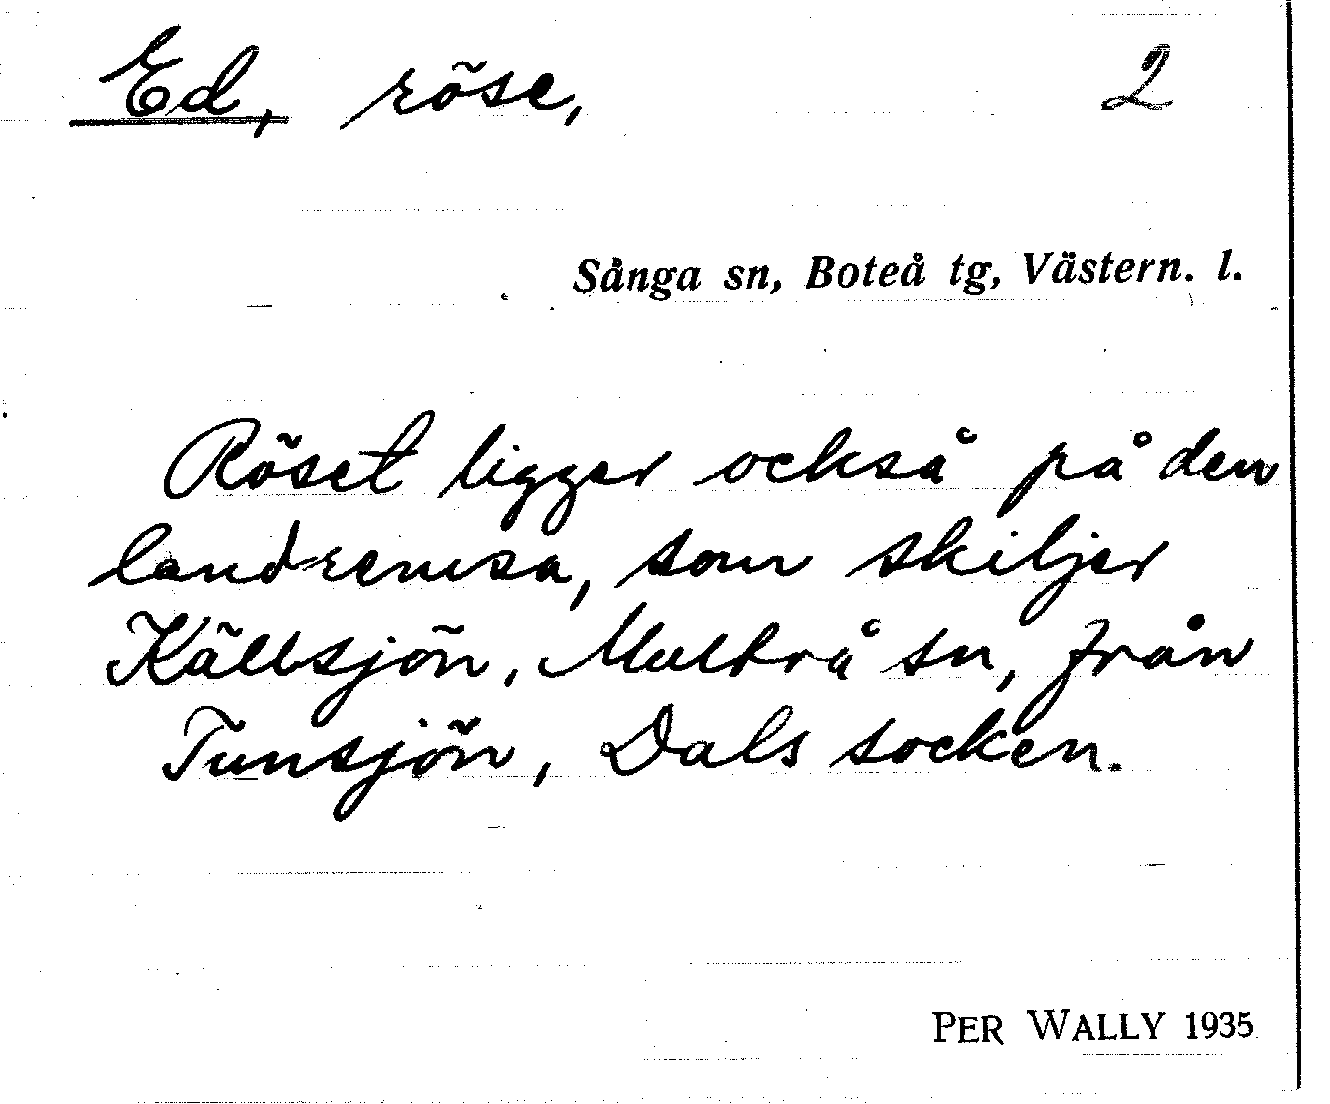 Ed, röse, 2
Sånga sn, Boteå tg, Västern. l.
Röset ligger också på den
landremsa, som skiljer
Källsjön, Multrå sn, från
Tunsjön, Dals socken.
PER WALLY 1935